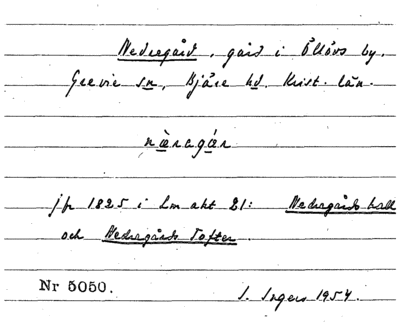 Nedregård, gård i Öllövs by,
Grevie sn, Bjäre hd. Krist. län.
nè̱ragá̱r
jfr 1825 i Lm akt 21: Nedregårds hall
och Nedregårds Tofter.
Nr 5050.
I. Ingers 1954.